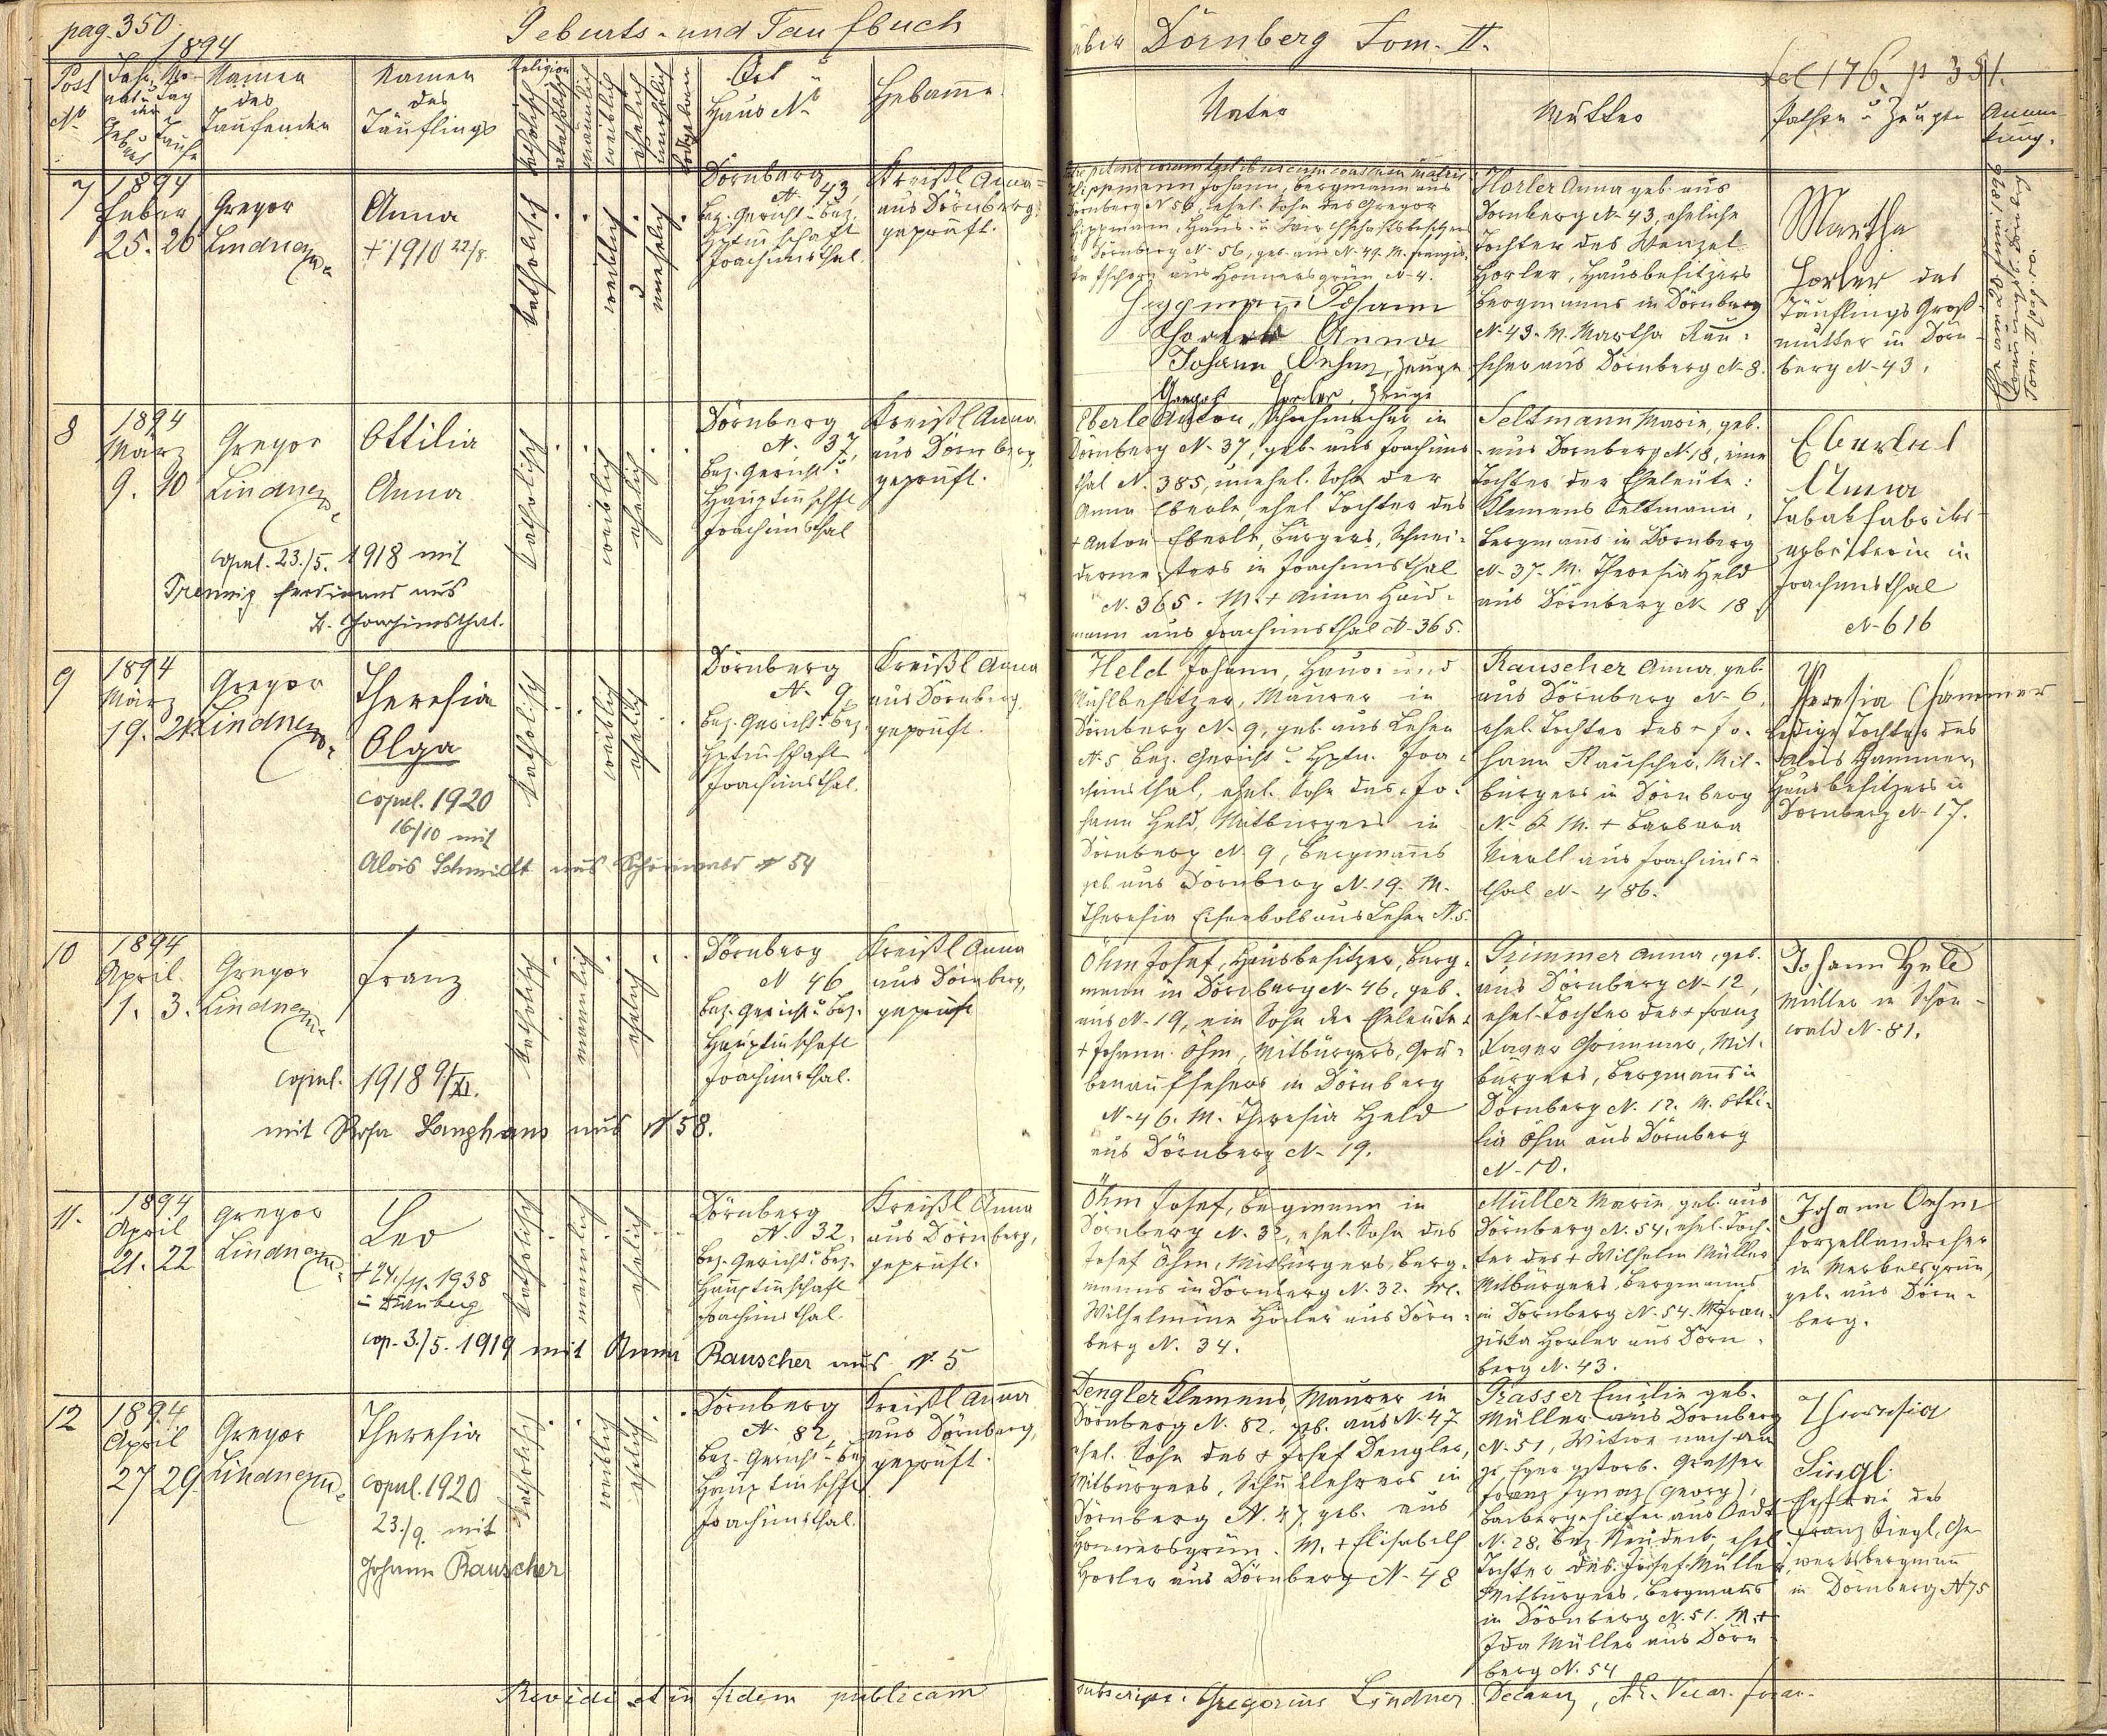 pag. 350.
Geburts- und Taufbuch
über Dörnberg Tom. II.
fol 176. p 351.
1894
Post
No
Jahr, Mo-
nat u Tag
der
Geburt
Taufe
Namen
des
Taufenden
Namen
des
Täuflings
Religion
katholisch
akatholisch
männlich
weiblich
ehelich
unehelich
todtgeboren
Ort
u
Haus No
Hebamme.
Vater
Mutter
Pathen u Zeugen
Anmer-
kung.
7
1894
Feber
25. 26
Gregor
Lindner
Anna
+ 1910 22/8.
katholisch
weiblich
unehelich
Dörnberg
N. 43,
Bez. Gericht u Bez.
Hptmschaft
Joachimsthal.
Kreißl Anna
aus Dörnberg,
geprüft.
Hippmann Johann, Bergmann aus
Dörnberg N 56, ehel. Sohn des Gregor
Hippmann, Haus- u Wirthschaftsbesitzers
in Dörnberg N. 56, geb. aus N. 49. M. Franzis-
ka aus Honnersgrün N. 4.
Hippmann Johann
Horler Anna
Johann Oehm, Zeuge
Horler, Zeuge
Horler Anna geb. aus
Dörnberg N. 43, eheliche
Tochter des Wenzel
Horler, Hausbesitzers
Bergmanns in Dörnberg
N. 43. M. Martha Rau-
scher aus Dörnberg N. 8.
Martha
Horler des
Täuflings Groß-
mutter in Dörn-
berg N. 43.
8
1894
März
9. 10
Gregor
Lindner
Ottilia
Anna
copul. 23./5. 1918 mit
Ferdinand aus
St. Joachimsthal.
katholisch
weiblich
ehelich
Dörnberg
N. 37,
Bez. Gericht u
Hauptmschft
Joachimsthal
Kreißl Anna
aus Dörnberg,
geprüft.
Eberle Anton, Schuhmacher in
Dörnberg N. 37, geb. aus Joachims-
thal N. 385, unehel. Sohn der
Anna Eberle, ehel Tochter des
+ Anton Eberle, Bürgers, Schnei-
dermeisters in Joachimsthal
N. 365. M. + Anna Haid-
mann aus Joachimsthal N. 365.
Seltmann Marie, geb.
aus Dörnberg N. 18, eine
Tochter der Eheleute:
Klemens Seltmann,
Bergmanns in Dörnberg
N. 37. M. Theresia Held
aus Dörnberg N. 18
Eberle
Anna
Tabakfabriks-
arbeiterin in
Joachimsthal
N. 616
9
1894
März
19. 21
Gregor
Lindner
Theresia
Olga
copul. 1920
16/10 mit
Alois Schmidt aus Schönwald N 54
katholisch
weiblich
ehelich
Dörnberg
N. 9
Bez. Gericht u Bez.
Hptmschaft
Joachimsthal.
Kreißl Anna
aus Dörnberg
geprüft.
Held Johann, Haus- und
Mühlbesitzer, Maurer in
Dörnberg N. 9, geb. aus Lehen
N. 5 Bez. Gericht u Hptm. Joa-
chimsthal, ehel. Sohn des Jo-
hann Held, Mitbürgers in
Dörnberg N. 9, Bergmanns
geb. aus Dörnberg N. 19. M.
Theresia aus Lehen N. 5.
Rauscher Anna, geb.
aus Dörnberg N. 6,
ehel. Tochter des + Jo-
hann Rauscher, Mit-
bürgers in Dörnberg
N. 6 M. + Barbara
aus Joachims-
thal N. 486.
Theresia Hammer
ledige Tochter des
Alois Hammer,
Hausbesitzers in
Dörnberg N. 17.
10
1894
April
1. 3.
Gregor
Lindner
Franz
copul. 1918 9/XI.
mit Rosa Langhans aus N 58.
katholisch
männlich
ehelich
Dörnberg
N 46
Bez. Gericht u Bez.
Hauptmschaft
Joachimsthal.
Kreißl Anna
aus Dörnberg,
geprüft
Öhm Josef, Hausbesitzer, Berg-
mann in Dörnberg N. 46, geb.
aus N. 19, ein Sohn der Eheleute:
+ Johann Öhm, Mitbürgers, Gru-
benaufsehers in Dörnberg
N. 46. M. Theresia Held
aus Dörnberg N. 19.
Grimmer Anna, geb.
aus Dörnberg N. 12,
ehel. Tochter des + Franz
Xaver Grimmer, Mit-
bürgers, Bergmanns in
Dörnberg N. 12. M. Otti-
lia Öhm aus Dörnberg
N. 10.
Johann Held
Müller in Schön-
wald N. 81.
11.
1894
April
21. 22
Gregor
Lindner
Leo
+ 24./11. 1938
in Dürnberg
cop. 3./5. 1919 mit Anna Rauscher aus N. 5
katholisch
männlich
ehelich
Dörnberg
N. 32,
Bez. Gericht u Bez.
Hauptmschaft
Joachimsthal.
Kreißl Anna
aus Dörnberg,
geprüft.
Öhm Josef, Bergmann in
Dörnberg N. 32, ehel. Sohn des
Josef Öhm, Mitbürgers, Berg-
manns in Dörnberg N. 32. M.
Wilhelmine Horler aus Dörn-
berg N. 34.
Müller Marie, geb. aus
Dörnberg N. 54, ehel. Toch-
ter des + Wilhelm Müller
Mitbürgers, Bergmanns
in Dörnberg N. 54. M. Fran-
ziska Horler aus Dörn-
berg N. 43.
Johann Oehm
Porzellandreher
in Merkelsgrün,
geb. aus Dörn-
berg.
12
1894
April
27 29.
Gregor
Lindner
Theresia
copul. 1920
23./9. mit
Johann Rauscher
katholisch
weiblich
ehelich
Dörnberg
N. 82,
Bez. Gericht u Bez
Hauptmschft
Joachimsthal.
Kreißl Anna
aus Dörnberg,
geprüft.
Dengler Klemens, Maurer in
Dörnberg N. 82, geb. aus N. 47
ehel. Sohn des + Josef Dengler,
Mitbürgers, Schullehrers in
Dörnberg N. 47, geb. aus
Honnersgrün. M. + Elisabeth
Horler aus Dörnberg N. 48
Grasser Emilie geb.
Müller aus Dörnberg
N. 51, Witwe nach dem
zu Eger gstorb. Grasser
Franz Ignaz (Georg),
aus
N. 28, Bez. Neudek, ehel
Tochter des Josef Müller,
Mitbürgers, Bergmanns
in Dörnberg N. 51. M. +
Ida Müller aus Dörn-
berg N. 54
Theresia
Siegl
Ehefrau des
Franz Siegl, Ge-
werksbergmann
in Dörnberg N 75
Revidi et in fidem publicam subscripsi. Gregorius Lindner. Decanus,